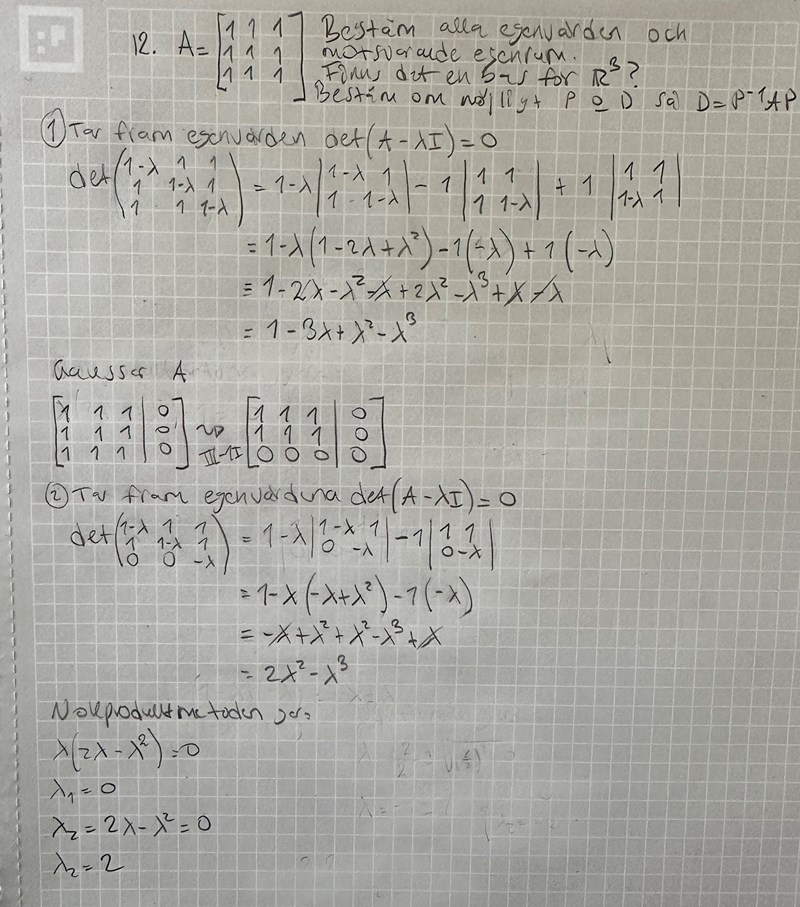 12. A = [1 1 1; 1 1 1; 1 1 1] Bestäm alla egenvärden och
motsvarande egenrum.
Finns det en bas för ℝ³?
Bestäm om möjligt P o D så D = P⁻¹AP
① Tar fram egenvärden det(A - λI) = 0
det(1-λ 1 1; 1 1-λ 1; 1 1 1-λ) = 1-λ |1-λ 1; 1 1-λ| - 1 |1 1; 1 1-λ| + 1 |1 1; 1-λ 1|
= 1-λ(1-2λ+λ²) - 1(-λ) + 1(-λ)
= 1-2λ-λ²-λ+2λ²-λ³+λ-λ
= 1-3λ+λ²-λ³
Gaussar A
[1 1 1 | 0; 1 1 1 | 0; 1 1 1 | 0] ~ III-II [1 1 1 | 0; 1 1 1 | 0; 0 0 0 | 0]
② Tar fram egenvärdena det(A - λI) = 0
det(1-λ 1 1; 1 1-λ 1; 0 0 -λ) = 1-λ |1-λ 1; 0 -λ| - 1 |1 1; 0 -λ|
= 1-λ(-λ+λ²) - 1(-λ)
= -λ+λ²+λ²-λ³+λ
= 2λ²-λ³
Nollproduktmetoden ger:
λ(2λ-λ²) = 0
λ₁ = 0
λ₂ = 2λ-λ² = 0
λ₂ = 2